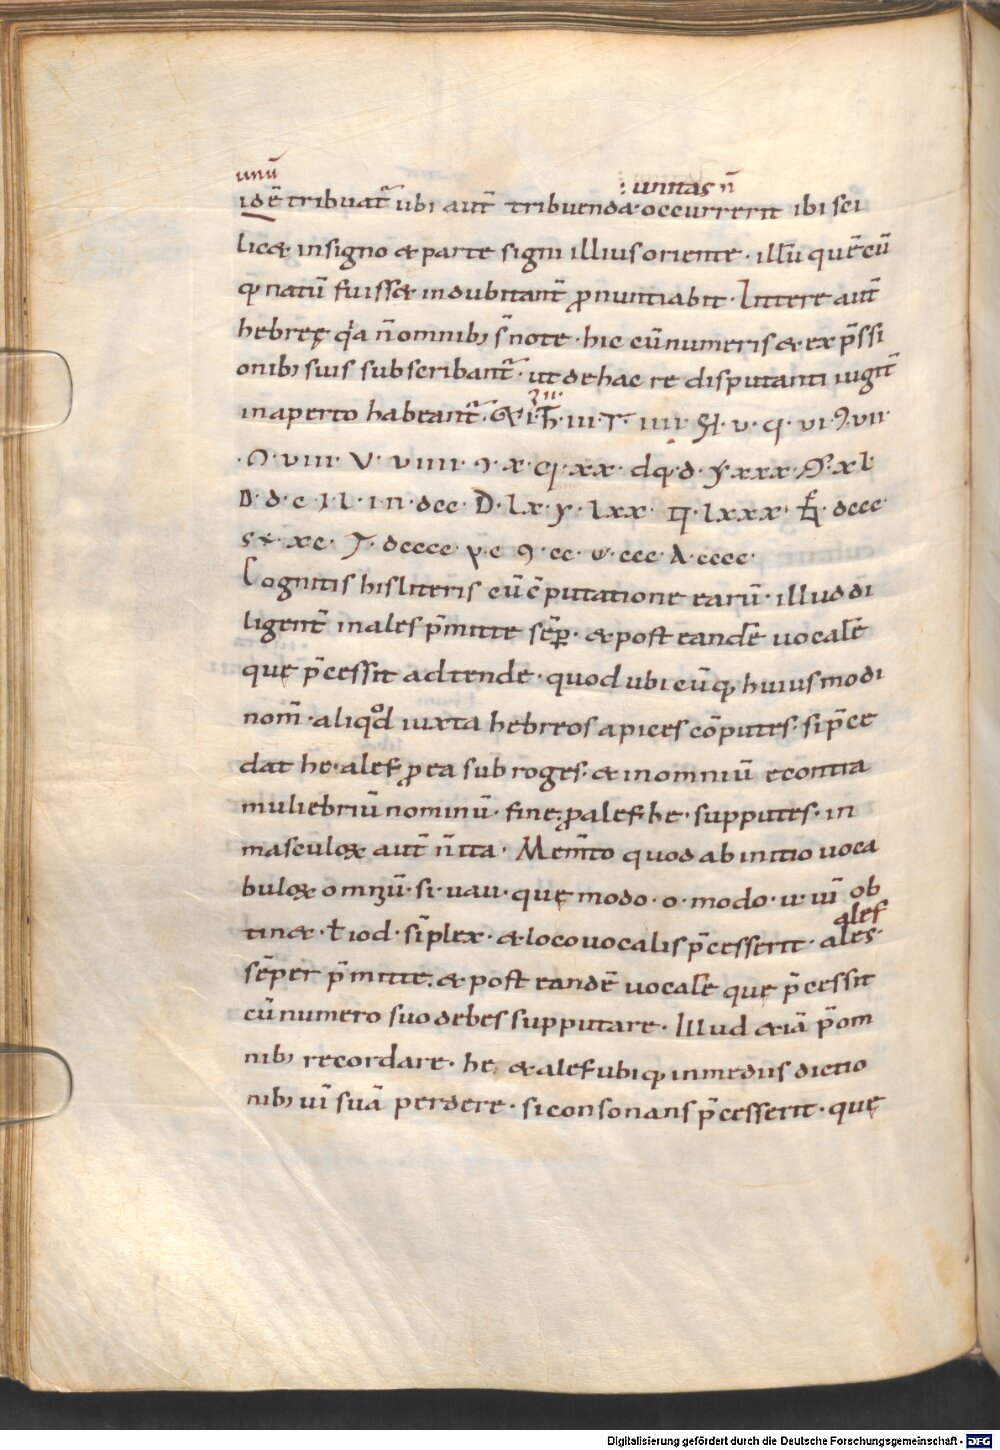 unū
: unitas n̄
idē tribuat᷑ ubi aut̄ tribuenda occurrerit ibi sci
licet in signo & parte signi illius oriente · illū quē cū
q̄ natū fuisse indubitant̄ ꝓnuntiabit · Littere aut̄
hebreę q'a n̄ omnib; s̄ note · hic cū numeris & exp̄ssi
onib; suis subscribant᷑ · ut de hac re disputanti iugit̄
in aperto habeant᷑ ·
· viii · V · viiii · x · xx · xxx · xl
lx · y · lxx · lxxx · dccc
xc · dcccc · c · cc · ccc · A · cccc ·
Cognitis his literis cū c̄putatione earū · illud di
ligent̄ in ales p̄mitte sēꝑ · & post eandē uocalē
quę p̄cessit adtende · quod ubicūq; huiusmodi
nom̄ · aliqod iuxta hebreos apices cōputes · si p̄ce
dat he · alef ꝓ ea subroges · & in omniū econtra
muliebriū nominū · fine: ꝓ alef he · supputes · in
masculoꝝ aut̄ n̄ ita · Mem̄to quod ab initio uoca
buloꝝ omniū · si · uau · quę modo · o · modo · u · uī ob
alef
tinet · ł iod · sīplex · & loco uocalis p̄cesserit · ales ·
sēper p̄mitte: & post eandē uocalē quę p̄cessit
cū numero suo debes supputare · Illud &iā p̄ om
nib; recordare · he & alef ubiq; in mediis dictio
nib; uī suā perdere · si consonans p̄cesserit · quę
Digitalisierung gefördert durch die Deutsche Forschungsgemeinschaft - DFG